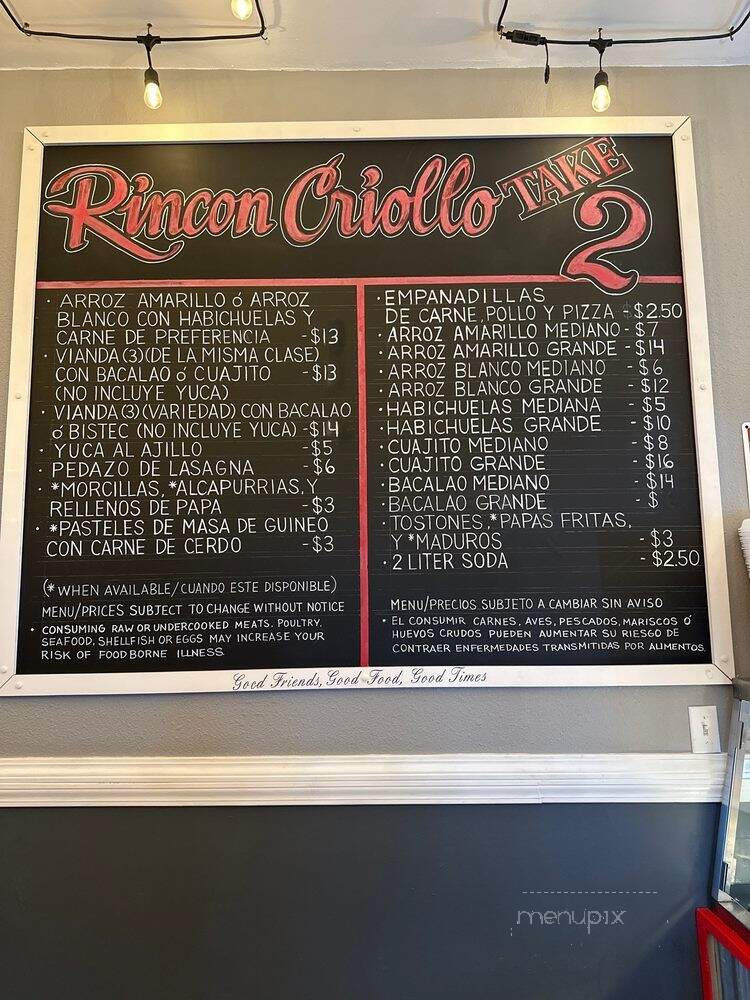 Rincon Criollo TAKE 2
· ARROZ AMARILLO ó ARROZ
BLANCO CON HABICHUELAS Y
CARNE DE PREFERENCIA -$13
· VIANDA (3) (DE LA MISMA CLASE)
CON BACALAO ó CUAJITO -$13
(NO INCLUYE YUCA)
· VIANDA (3) (VARIEDAD) CON BACALAO
ó BISTEC (NO INCLUYE YUCA) -$14
· YUCA AL AJILLO -$5
· PEDAZO DE LASAGNA -$6
· *MORCILLAS, *ALCAPURRIAS, Y
RELLENOS DE PAPA -$3
· *PASTELES DE MASA DE GUINEO
CON CARNE DE CERDO -$3
(* WHEN AVAILABLE/CUANDO ESTE DISPONIBLE)
MENU/PRICES SUBJECT TO CHANGE WITHOUT NOTICE
· CONSUMING RAW OR UNDERCOOKED MEATS, POULTRY,
SEAFOOD, SHELLFISH OR EGGS MAY INCREASE YOUR
RISK OF FOODBORNE ILLNESS
· EMPANADILLAS
DE CARNE, POLLO Y PIZZA -$2.50
· ARROZ AMARILLO MEDIANO -$7
· ARROZ AMARILLO GRANDE -$14
· ARROZ BLANCO MEDIANO -$6
· ARROZ BLANCO GRANDE -$12
· HABICHUELAS MEDIANA -$5
· HABICHUELAS GRANDE -$10
· CUAJITO MEDIANO -$8
· CUAJITO GRANDE -$16
· BACALAO MEDIANO -$14
· BACALAO GRANDE -$
· TOSTONES, *PAPAS FRITAS,
Y *MADUROS -$3
· 2 LITER SODA -$2.50
MENU/PRECIOS SUBJETO A CAMBIAR SIN AVISO
· EL CONSUMIR CARNES, AVES, PESCADOS, MARISCOS Ó
HUEVOS CRUDOS PUEDEN AUMENTAR SU RIESGO DE
CONTRAER ENFERMEDADES TRANSMITIDAS POR ALIMENTOS.
Good Friends, Good Food, Good Times
menupix